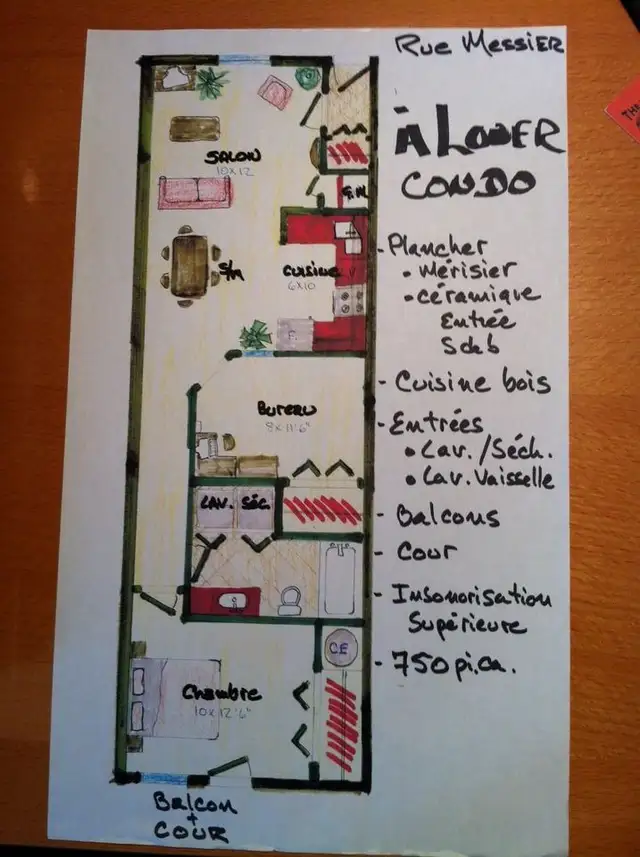 Rue Messier
À Louer
Condo
- Plancher
• Mérisier
• céramique
Entrée
Sdb
- Cuisine bois
- Entrées
• Lav./Séch.
• Lav. Vaisselle
- Balcons
- Cour
- Insonorisation
Supérieure
- 750 pi.ca.
SALON
10x12
G.M
S/M
Cuisine
6x10
Bureau
8x11'6"
LAV. SÉC.
CE
Chambre
10x12'6"
Balcon
+
COUR